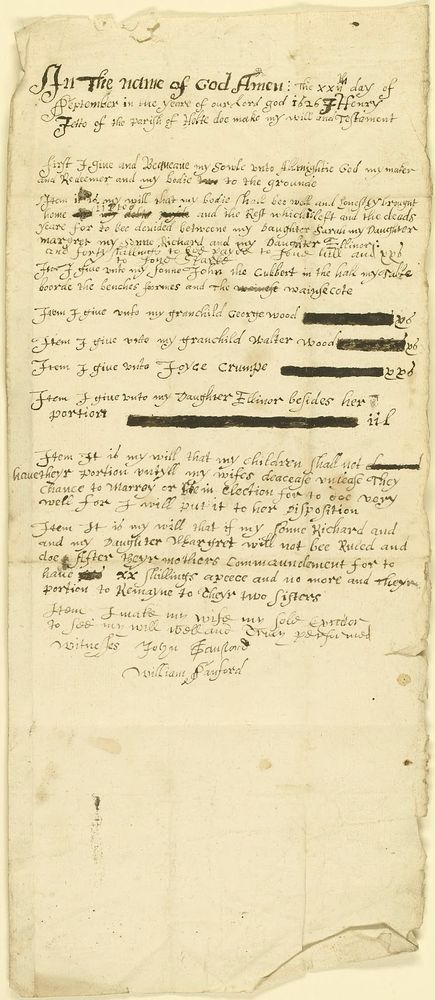 In The name of God Amen: The xxijth day of
September in the yeare of our Lord god 1626 I Henry
Jetto of the parish of Holte doe make my will and Testament
First I give and Bequeave my Sowle unto Allmightie God my maker
and Redeemer and my bodie to the grounde
Item it is my will that my bodie shall bee well and honestly brought
home and the Rest which is left and the deads
yeare for to bee devided betweene my Daughter Sarah my Daughter
margret my sonne Richard and my Daughter Ellinor:
and forty shillings to bee payde to Jone hill and xxs
to Jones
Item I give unto my Sonne John the Cubbert in the hall my table
boorde the benches foormes and the wainscote
Item I give unto my granchild George wood xs
Item I give unto my granchild Walter Wood xs
Item I give unto Joyce Crumpe xxs
Item I give unto my Daughter Ellinor besides her
portion iil
Item It is my will that my children shall not
have theyr portion untyll my wifes decease unlesse They
chance to Marrey or bee in Election for to doe very
well For I will put it to her Disposition
Item It is my will that if my Sonne Richard and
and my Daughter Margret will not bee Ruled and
doe After Theyr mothers Commaundement for to
have xx shillings apeece and no more and Theyr
portion to Remayne to Theyr two Sisters
Item I make my wife my sole
to see my will well and Truly performed
Witnesses John
William Sanford